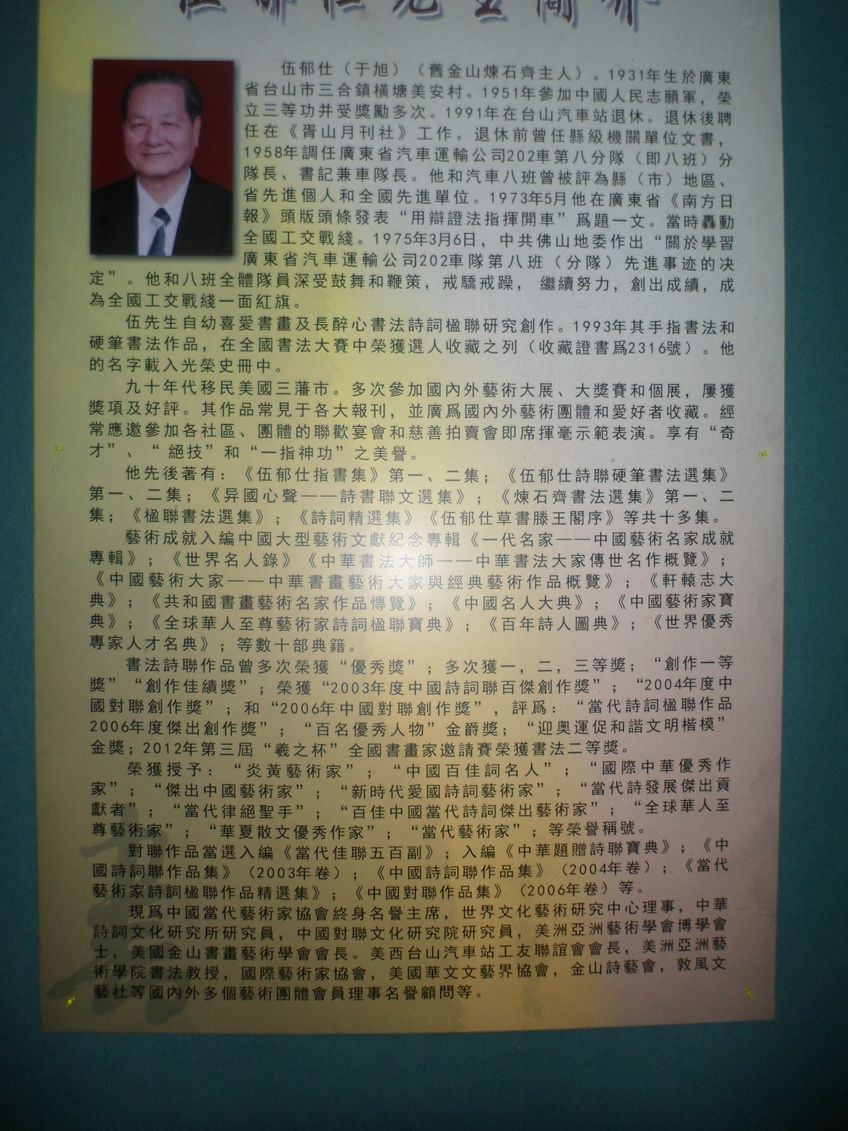 伍郁仕（于旭）（舊金山煉石齊主人）。1931年生於廣東
省台山市三合鎮橫塘美安村。1951年參加中國人民志願軍，榮
立三等功并受獎勵多次。1991年在台山汽車站退休。退休後聘
任在《胥山月刊社》工作。退休前曾任縣級機關單位文書，
1958年調任廣東省汽車運輸公司202車第八分隊（即八班）分
隊長、書記兼車隊長。他和汽車八班曾被評為縣（市）地區、
省先進個人和全國先進單位。1973年5月他在廣東省《南方日
報》頭版頭條發表“用辯證法指揮開車”爲題一文。當時轟動
全國工交戰綫。1975年3月6日，中共佛山地委作出“關於學習
廣東省汽車運輸公司202車隊第八班（分隊）先進事迹的决
定”。他和八班全體隊員深受鼓舞和鞭策，戒驕戒躁， 繼續努力，創出成績，成
為全國工交戰綫一面紅旗。
伍先生自幼喜愛書畫及長醉心書法詩詞楹聯研究創作。1993年其手指書法和
硬筆書法作品，在全國書法大賽中榮獲選人收藏之列（收藏證書爲2316號）。他
的名字載入光榮史冊中。
九十年代移民美國三藩市。多次參加國內外藝術大展、大獎賽和個展，屢獲
獎項及好評。其作品常見于各大報刊，並廣爲國內外藝術團體和愛好者收藏。經
常應邀參加各社區、團體的聯歡宴會和慈善拍賣會即席揮毫示範表演。享有“奇
才”、“ 絕技”和“一指神功”之美譽。
他先後著有：《伍郁仕指書集》第一、二集；《伍郁仕詩聯硬筆書法選集》
第一、二集；《异國心聲——詩書聯文選集》；《煉石齊書法選集》第一、二
集；《楹聯書法選集》；《詩詞精選集》《伍郁仕草書滕王閣序》等共十多集。
藝術成就入編中國大型藝術文獻紀念專輯《一代名家——中國藝術名家成就
專輯》；《世界名人錄》《中華書法大師——中華書法大家傳世名作概覽》；
《中國藝術大家——中華書畫藝術大家與經典藝術作品概覽》；《軒轅志大
典》；《共和國書畫藝術名家作品博覽》；《中國名人大典》；《中國藝術家寶
典》；《全球華人至尊藝術家詩詞楹聯寶典》；《百年詩人圖典》；《世界優秀
專家人才名典》；等數十部典籍。
書法詩聯作品曾多次榮獲“優秀獎”；多次獲一，二，三等獎；“創作一等
獎”“創作佳績獎”；榮獲“2003年度中國詩詞聯百傑創作獎”；“2004年度中
國對聯創作獎”；和“2006年中國對聯創作獎”，評爲：“當代詩詞楹聯作品
2006年度傑出創作獎”；“百名優秀人物”金爵獎；“迎奧運促和諧文明楷模”
金獎；2012年第三屆“羲之杯”全國書畫家邀請賽榮獲書法二等獎。
榮獲授予：“炎黃藝術家”；“中國百佳詞名人”；“國際中華優秀作
家”；“傑出中國藝術家”；“新時代愛國詩詞藝術家”；“當代詩發展傑出貢
獻者”；“當代律絕聖手”；“百佳中國當代詩詞傑出藝術家”；“全球華人至
尊藝術家”；“華夏散文優秀作家”；“當代藝術家”；等榮譽稱號。
對聯作品當選入編《當代佳聯五百副》；入編《中華題贈詩聯寶典》；《中
國詩詞聯作品集》（2003年卷）；《中國詩詞聯作品集》（2004年卷）；《當代
藝術家詩詞楹聯作品精選集》；《中國對聯作品集》（2006年卷）等。
現爲中國當代藝術家協會終身名譽主席，世界文化藝術研究中心理事，中華
詩詞文化研究所研究員，中國對聯文化研究院研究員，美洲亞洲藝術學會博學會
士，美國金山書畫藝術學會會長。美西台山汽車站工友聯誼會會長，美洲亞洲藝
術學院書法教授，國際藝術家協會，美國華文文藝界協會，金山詩藝會，敦風文
藝社等國內外多個藝術團體會員理事名譽顧問等。